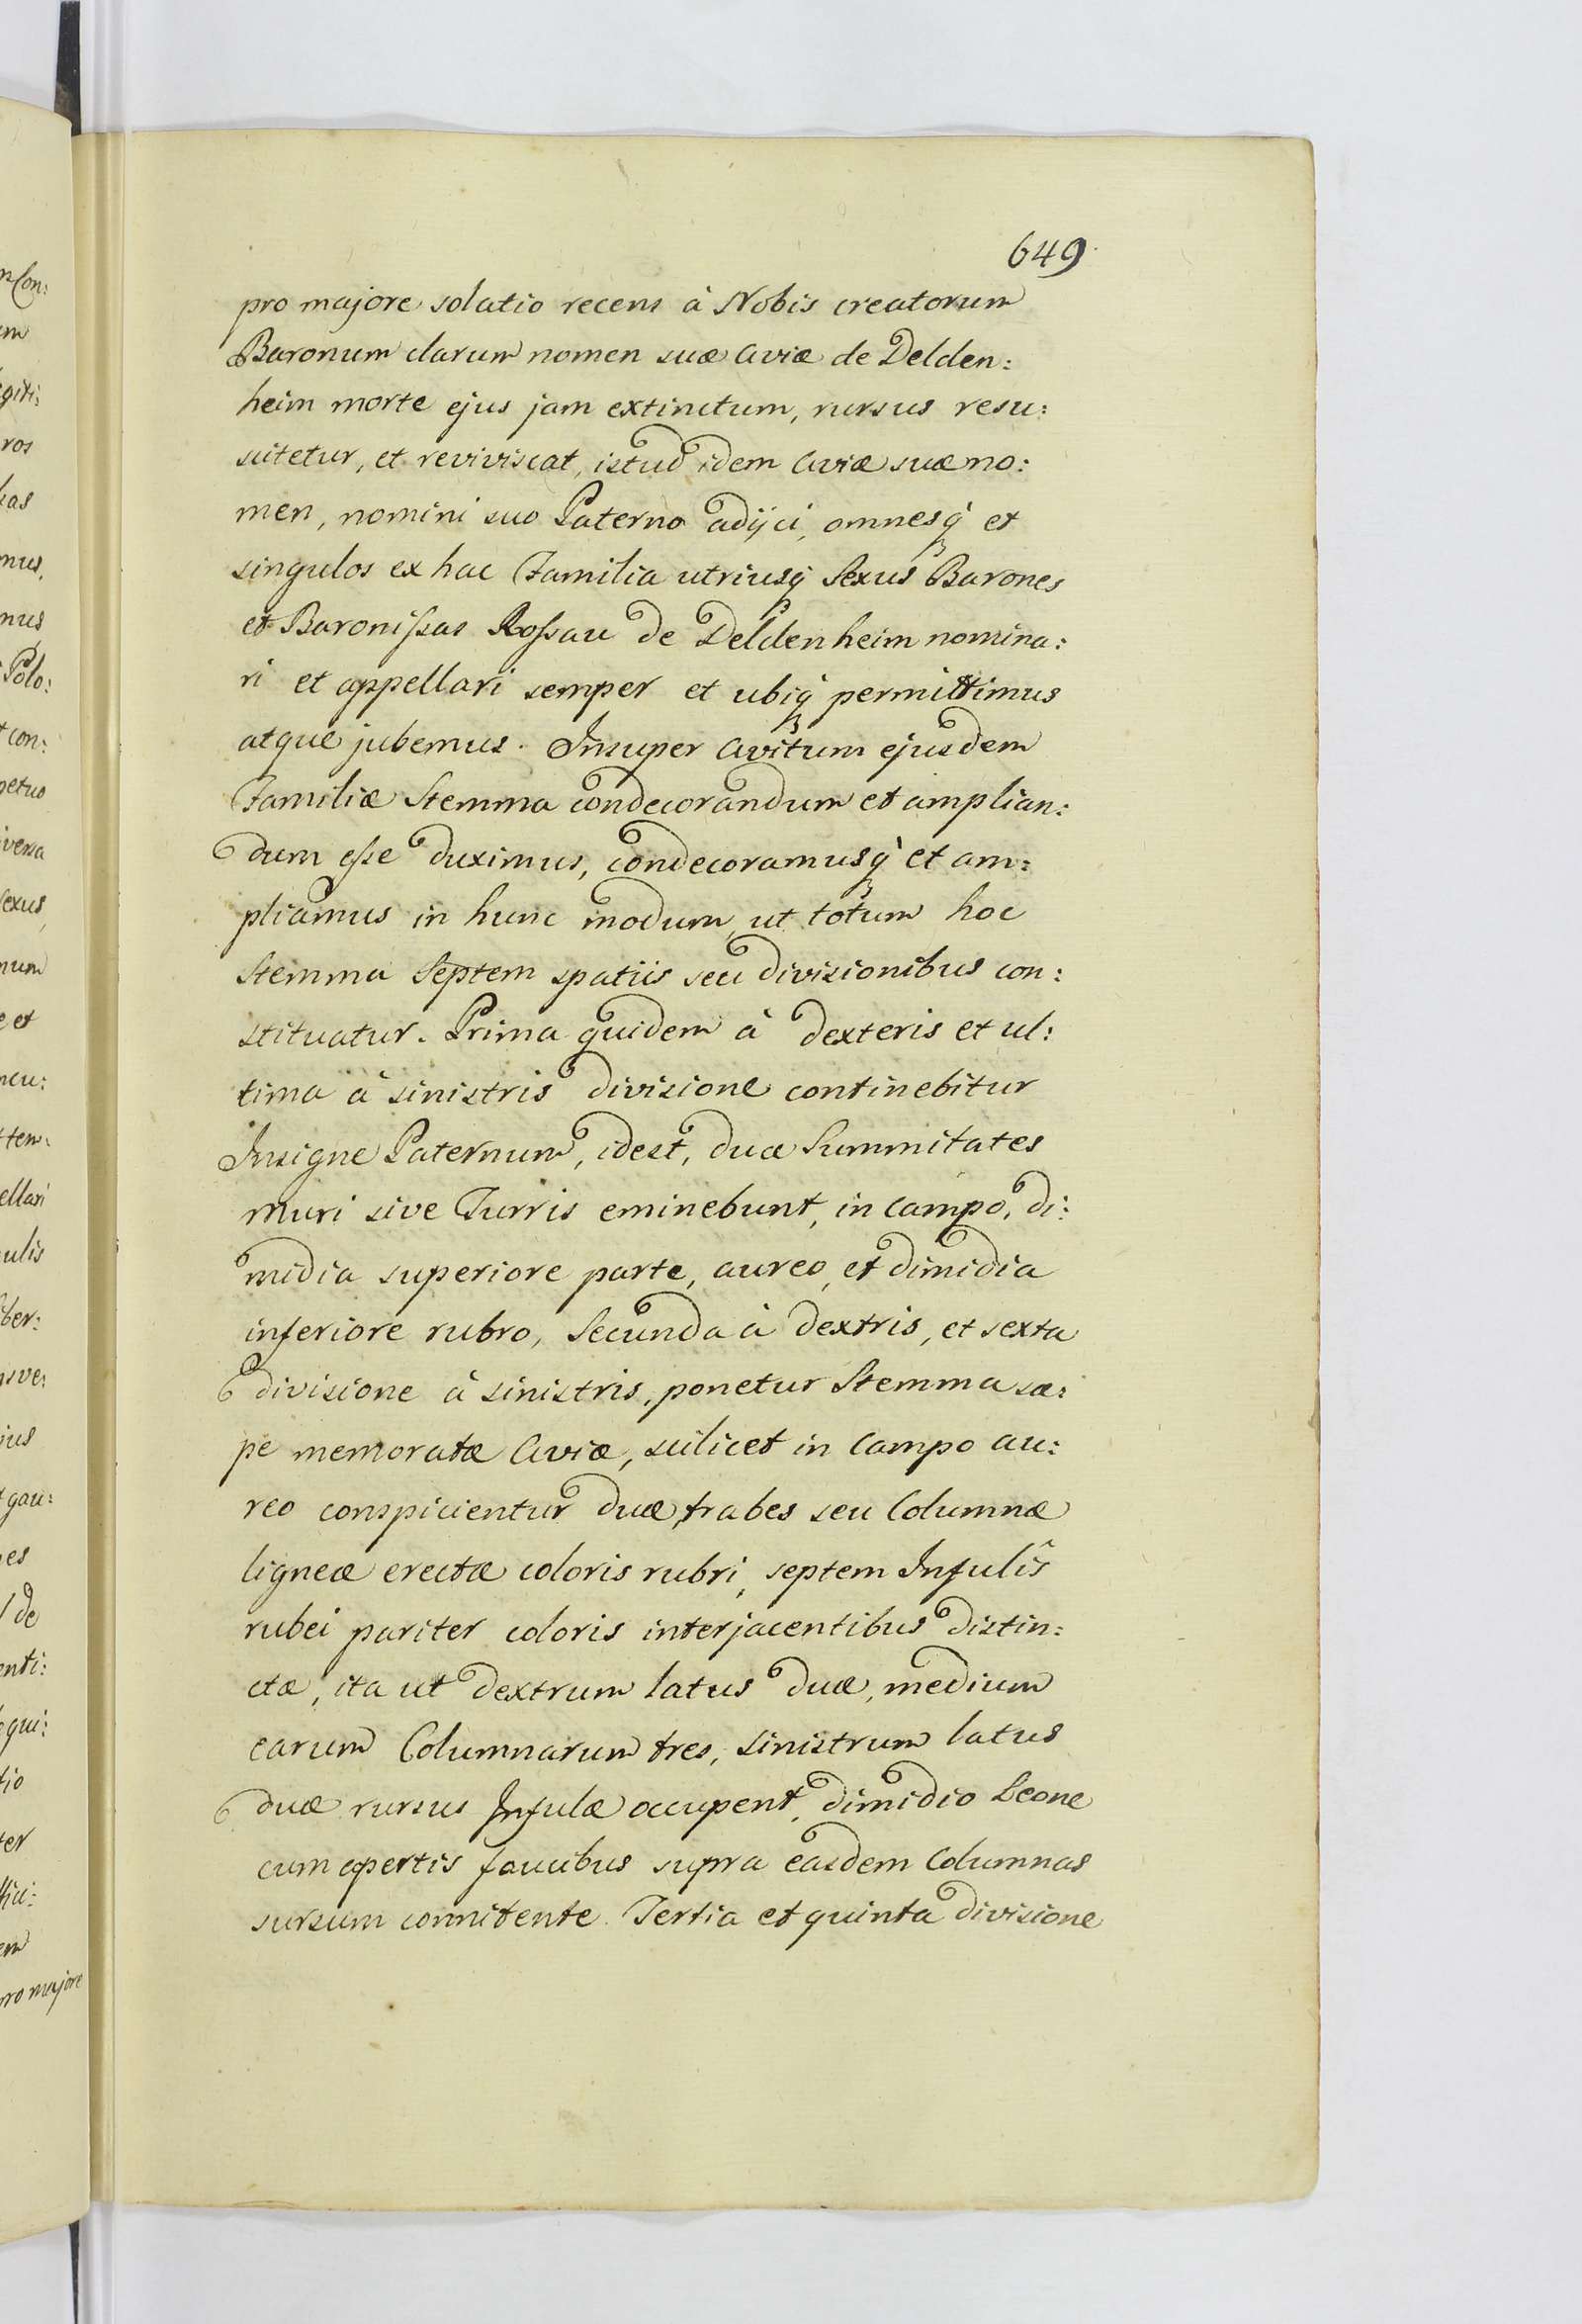 649
pro majore solatio recens à Nobis creatorum
Baronum clarum nomen suæ Aviæ de Delden:
heim morte ejus jam extinctum, rursus resu:
scitetur, et reviviscat, istud idem Aviæ suæ no:
men, nomini suo Paterno adijci, omnesq́ꝫ et
singulos ex hac Familia utriusq́ꝫ Sexus Barones
et Baronissas Rossau de Deldenheim nomina:
ri et appellari semper et ubiq́ꝫ permittimus
atque jubemus. Insuper Avitum ejusdem
Familiæ Stemma condecorandum et amplian:
dum esse duximus, condecoramusq́ꝫ et am:
pliamus in hunc modum, ut totum hoc
Stemma Septem spatiis seu divisionibus con:
stituatur. Prima quidem à dexteris et ul:
tima à sinistris divisione continebitur
Insigne Paternum, idest, duæ Summitates
muri sive Turris eminebunt, in campo, di:
midia superiore parte, aureo, et dimidia
inferiore rubro, Secunda à dextris, et sexta
divisione à sinistris, ponetur Stemma sæ:
pe memoratæ Aviæ, scilicet in Campo au:
reo conspicientur duæ trabes seu Columnæ
ligneæ erectæ coloris rubri, septem Infulis
rubei pariter coloris interjacentibus distin:
ctæ, ita ut dextrum latus duæ, medium
earum Columnarum tres, sinistrum latus
duæ rursus Infulæ occupent, dimidio Leone
cum apertis faucibus supra easdem Columnas
sursum connitente. Tertia et quinta divisione